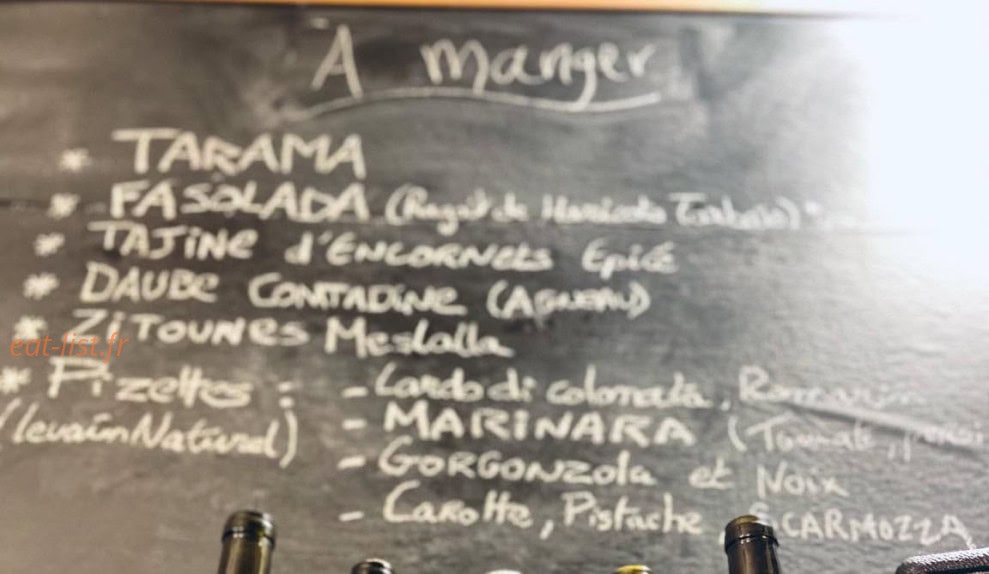 A manger
* TARAMA
* FASOLADA (Ragoût de Haricots Tarbais)*
* TAJINE d'ENCORNETS Epicé
* DAUBE COMTADINE (AGNEAU)
* ZITOUNES Meslalla
eat-list.fr
* Pizettes : - Lardo di colonnata, Romarin
(levain Naturel) - MARINARA (Tomate,
- GORGONZola et Noix
- Carotte, Pistache SCARMOZZA